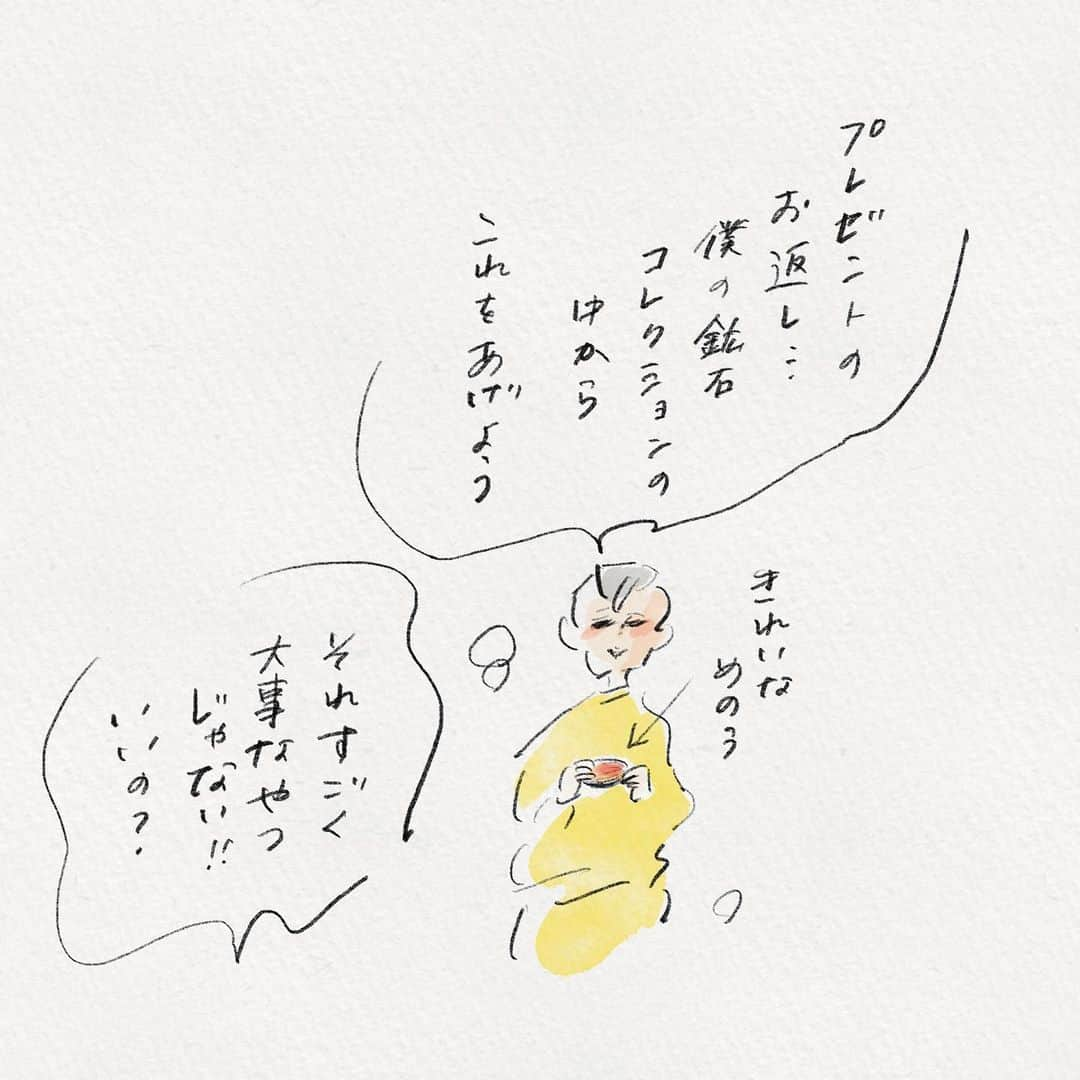 プレゼントの
お返しに
僕の鉱石
コレクションの
中から
これをあげよう
きれいな
めのう
それすごく
大事なやつ
じゃない!!
いいの?